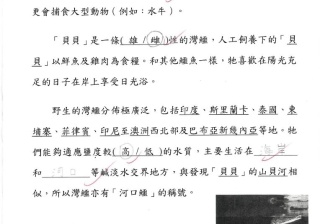 更會捕食大型動物(例如：水牛)。
「貝貝」是一條(雄/雌)性的灣鱷，人工飼養下的「貝
貝」以鮮魚及雞肉為食糧。和其他鱷魚一樣，牠喜歡在陽光充
足的日子在岸上享受日光浴。
野生的灣鱷分佈極廣泛，包括印度、斯里蘭卡、泰國、柬
埔寨、菲律賓、印尼至澳洲西北部及巴布亞新幾內亞等地。牠
們能夠適應鹽度較(高/低)的水質，主要生活在
和 河口 等鹹淡水交界地方，與發現「貝貝」的山貝河相
似，所以灣鱷亦有「河口鱷」的稱號。